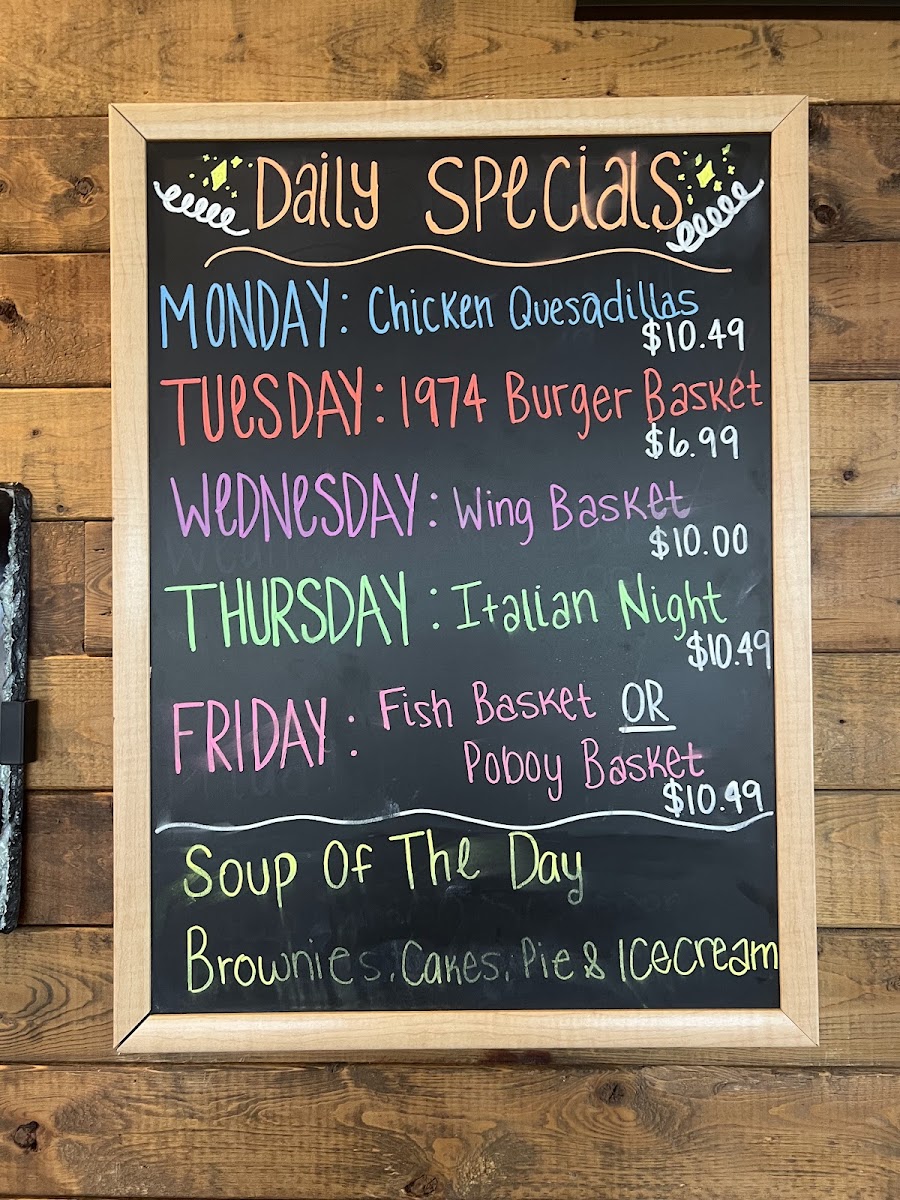 Daily Specials
MONDAY: Chicken Quesadillas
$10.49
TUesDAY: 1974 Burger Basket
$6.99
WeDNesDAY: Wing Basket
$10.00
THURSDAY: Italian Night
$10.49
FRIDAY: Fish Basket OR
Poboy Basket
$10.49
Soup Of The Day
Brownies, Cakes, Pie & Icecream